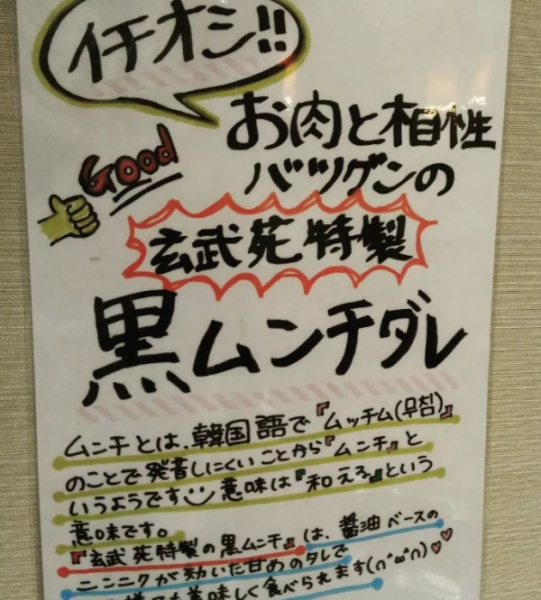 イチオシ!!
お肉と相性
Good
バツグンの
玄武苑特製
黒ムンチダレ
ムンチとは、韓国語で『ムッチム(무침)』
のことで発音しにくいことから『ムンチ』と
いうようです 意味は『和える』という
意味です。
『玄武苑特製の黒ムンチ』は、醤油ベースの
ニンニクが効いた甘めのタレで
ても美味しく食べられます(∩´ω`∩)♥♥